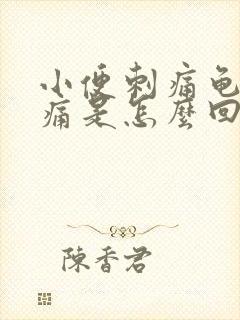 小便刺痛龟
痛是怎麼回
陳香君